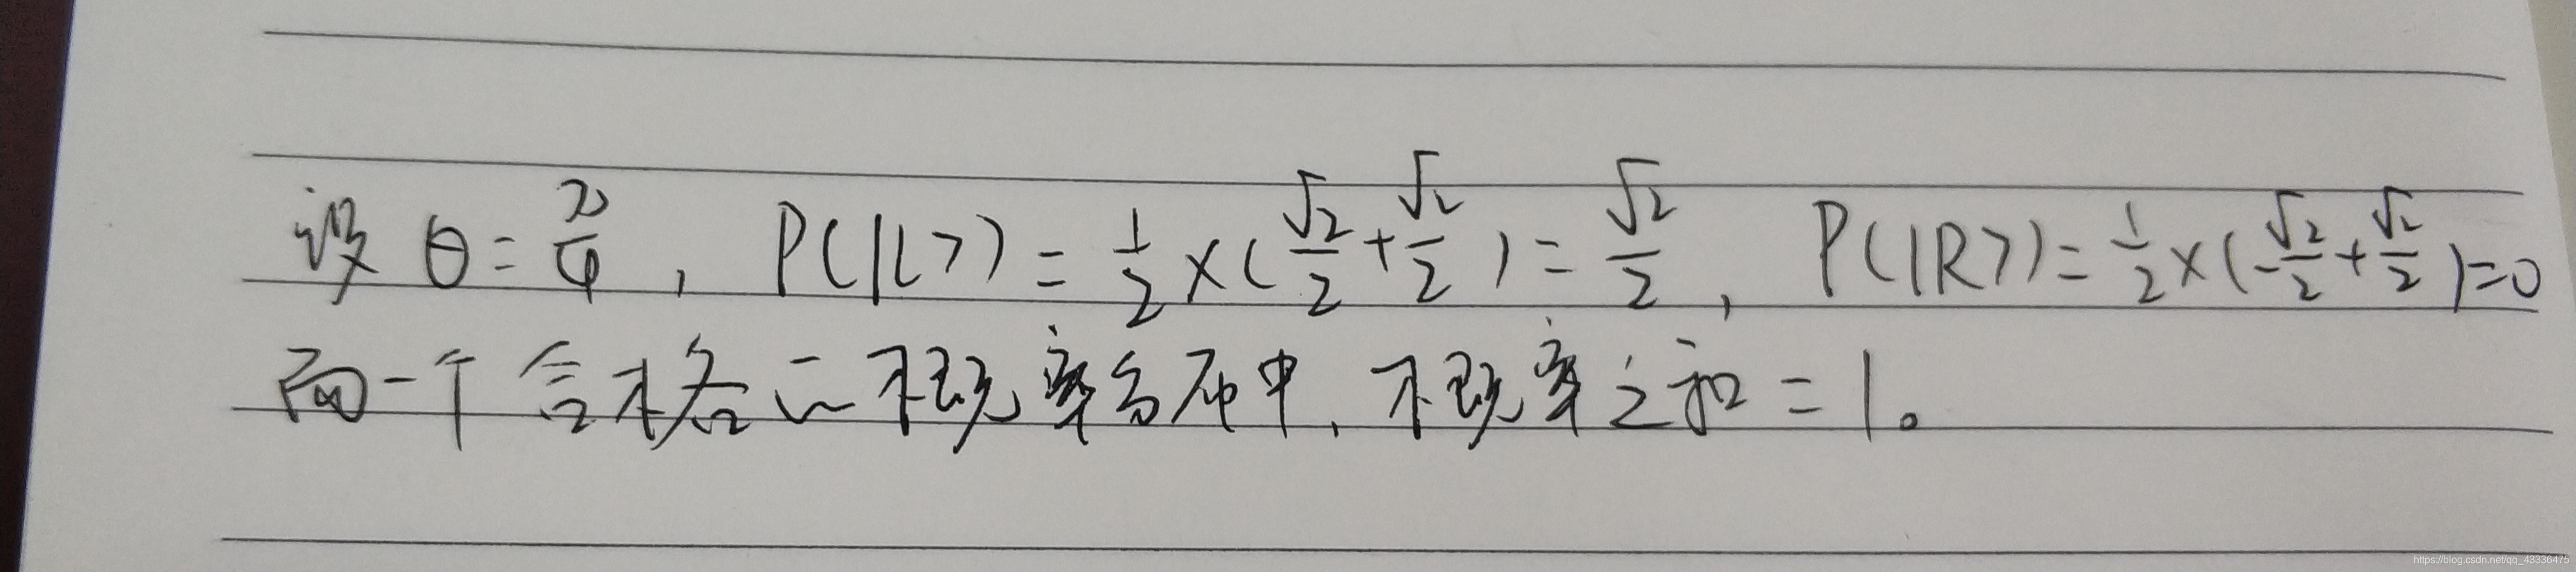 设 θ = π/4 , P(|L>) = 1/2 × ( √2/2 + √2/2 ) = √2/2 , P(|R>) = 1/2 × ( -√2/2 + √2/2 ) = 0
而一个合格的概率分布中，概率之和 = 1。
https://blog.csdn.net/qq_43336475